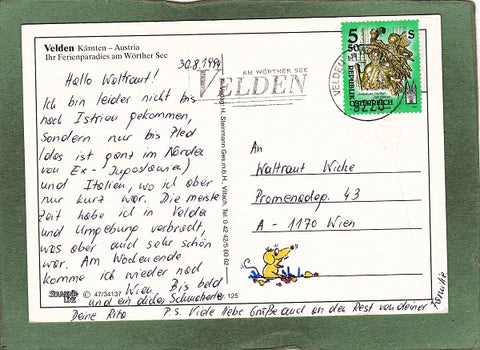 Velden Kärnten – Austria
Ihr Ferienparadies am Wörther See
30.8.1994
Hallo Waltraut!
Ich bin leider nicht bis
nach Istrien gekommen,
sondern nur bis Bled
(das ist ganz im Norden
von Ex-Jugoslawien)
und Italien, wo ich aber
nur kurz war. Die meiste
Zeit habe ich in Velden
und Umgebung verbracht,
was aber auch sehr schön
war. Am Wochenende
komme ich wieder nach
Wien. Bis bald
und ein dickes Schmatzerle
Deine Rita
P.S. Viele liebe Grüße auch an den Rest von deiner Familie
AM WÖRTHER SEE
VELDEN
VELDEN
9220
5 50 S
REPUBLIK
ÖSTERREICH
An
Waltraut
Promenadeg. 43
A - 1170 Wien
H. Steinmann Ges.m.b.H., Villach, Tel. 0 42 42/5 60 62
© 47/34137
125